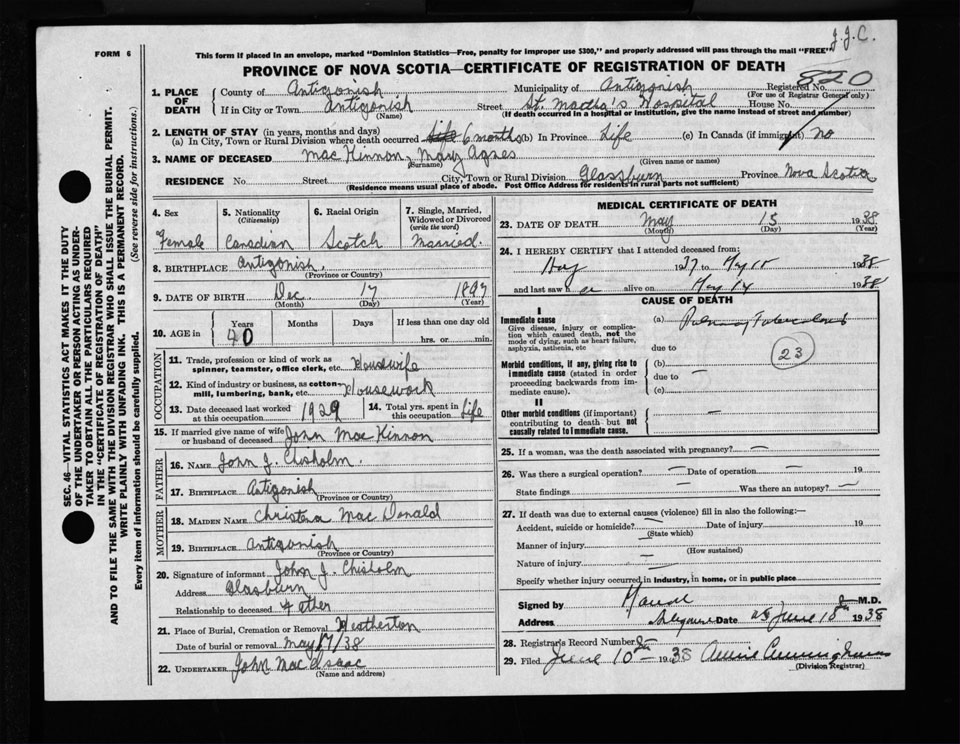 FORM 6
This form if placed in an envelope, marked "Dominion Statistics—Free, penalty for improper use $300," and properly addressed will pass through the mail "FREE"
J.J.C.
PROVINCE OF NOVA SCOTIA—CERTIFICATE OF REGISTRATION OF DEATH
820
1. PLACE OF DEATH County of Antigonish Municipality of Antigonish Registered No.
(For use of Registrar General only)
If in City or Town Antigonish Street St. Martha's Hospital House No.
(Name) (If death occurred in a hospital or institution, give the name instead of street and number)
2. LENGTH OF STAY (in years, months and days)
(a) In City, Town or Rural Division where death occurred life 6 months (b) In Province Life (c) In Canada (if immigrant) no
3. NAME OF DECEASED Mac Kinnon, Mary Agnes
(Surname) (Given name or names)
RESIDENCE No. Street City, Town or Rural Division Glassburn Province Nova Scotia
(Residence means usual place of abode. Post Office Address for residents in rural parts not sufficient)
SEC. 46—VITAL STATISTICS ACT MAKES IT THE DUTY
OF THE UNDERTAKER OR PERSON ACTING AS UNDER-
TAKER TO OBTAIN ALL THE PARTICULARS REQUIRED
IN THE "CERTIFICATE OF REGISTRATION OF DEATH"
AND TO FILE THE SAME WITH THE DIVISION REGISTRAR WHO SHALL ISSUE THE BURIAL PERMIT.
WRITE PLAINLY WITH UNFADING INK. THIS IS A PERMANENT RECORD.
Every item of information should be carefully supplied. (See reverse side for instructions.)
4. Sex 5. Nationality (Citizenship) 6. Racial Origin 7. Single, Married, Widowed or Divorced (write the word)
Female Canadian Scotch Married.
8. BIRTHPLACE Antigonish.
(Province or Country)
9. DATE OF BIRTH Dec. 17 1897
(Month) (Day) (Year)
10. AGE in Years Months Days If less than one day old
40 hrs. or min.
OCCUPATION
11. Trade, profession or kind of work as spinner, teamster, office clerk, etc. Housewife
12. Kind of industry or business, as cotton-mill, lumbering, bank, etc. Housework
13. Date deceased last worked at this occupation 1929 14. Total yrs. spent in this occupation Life
15. If married give name of wife or husband of deceased John Mac Kinnon
FATHER
16. NAME John J. Chisholm.
17. BIRTHPLACE Antigonish
(Province or Country)
MOTHER
18. MAIDEN NAME Christena Mac Donald
19. BIRTHPLACE Antigonish
(Province or Country)
20. Signature of informant John J. Chisholm
Address Glasburn
Relationship to deceased Father
21. Place of Burial, Cremation or Removal Heatherton
Date of burial or removal May 17/38
22. UNDERTAKER John Mac Isaac
(Name and address)
MEDICAL CERTIFICATE OF DEATH
23. DATE OF DEATH May 15 1938
(Month) (Day) (Year)
24. I HEREBY CERTIFY that I attended deceased from:
1937 to May 15 1938
and last saw her alive on May 14 1938
CAUSE OF DEATH
I
Immediate cause (a) Pulmonary Tuberculosis
Give disease, injury or complica-
tion which caused death, not the
mode of dying, such as heart failure,
asphyxia, asthenia, etc due to
23
Morbid conditions, if any, giving rise to (b)
immediate cause (stated in order due to —
proceeding backwards from im-
mediate cause). (c)
II
Other morbid conditions (if important) —
contributing to death but not
causally related to immediate cause.
25. If a woman, was the death associated with pregnancy? —
26. Was there a surgical operation? — Date of operation — 19
State findings — Was there an autopsy? —
27. If death was due to external causes (violence) fill in also the following:—
Accident, suicide or homicide? — Date of injury 19
(State which)
Manner of injury —
(How sustained)
Nature of injury —
Specify whether injury occurred in industry, in home, or in public place
Signed by M.D.
Address Date June 18 1938
28. Registrar's Record Number
29. Filed June 10 1938 Cunningham
(Division Registrar)